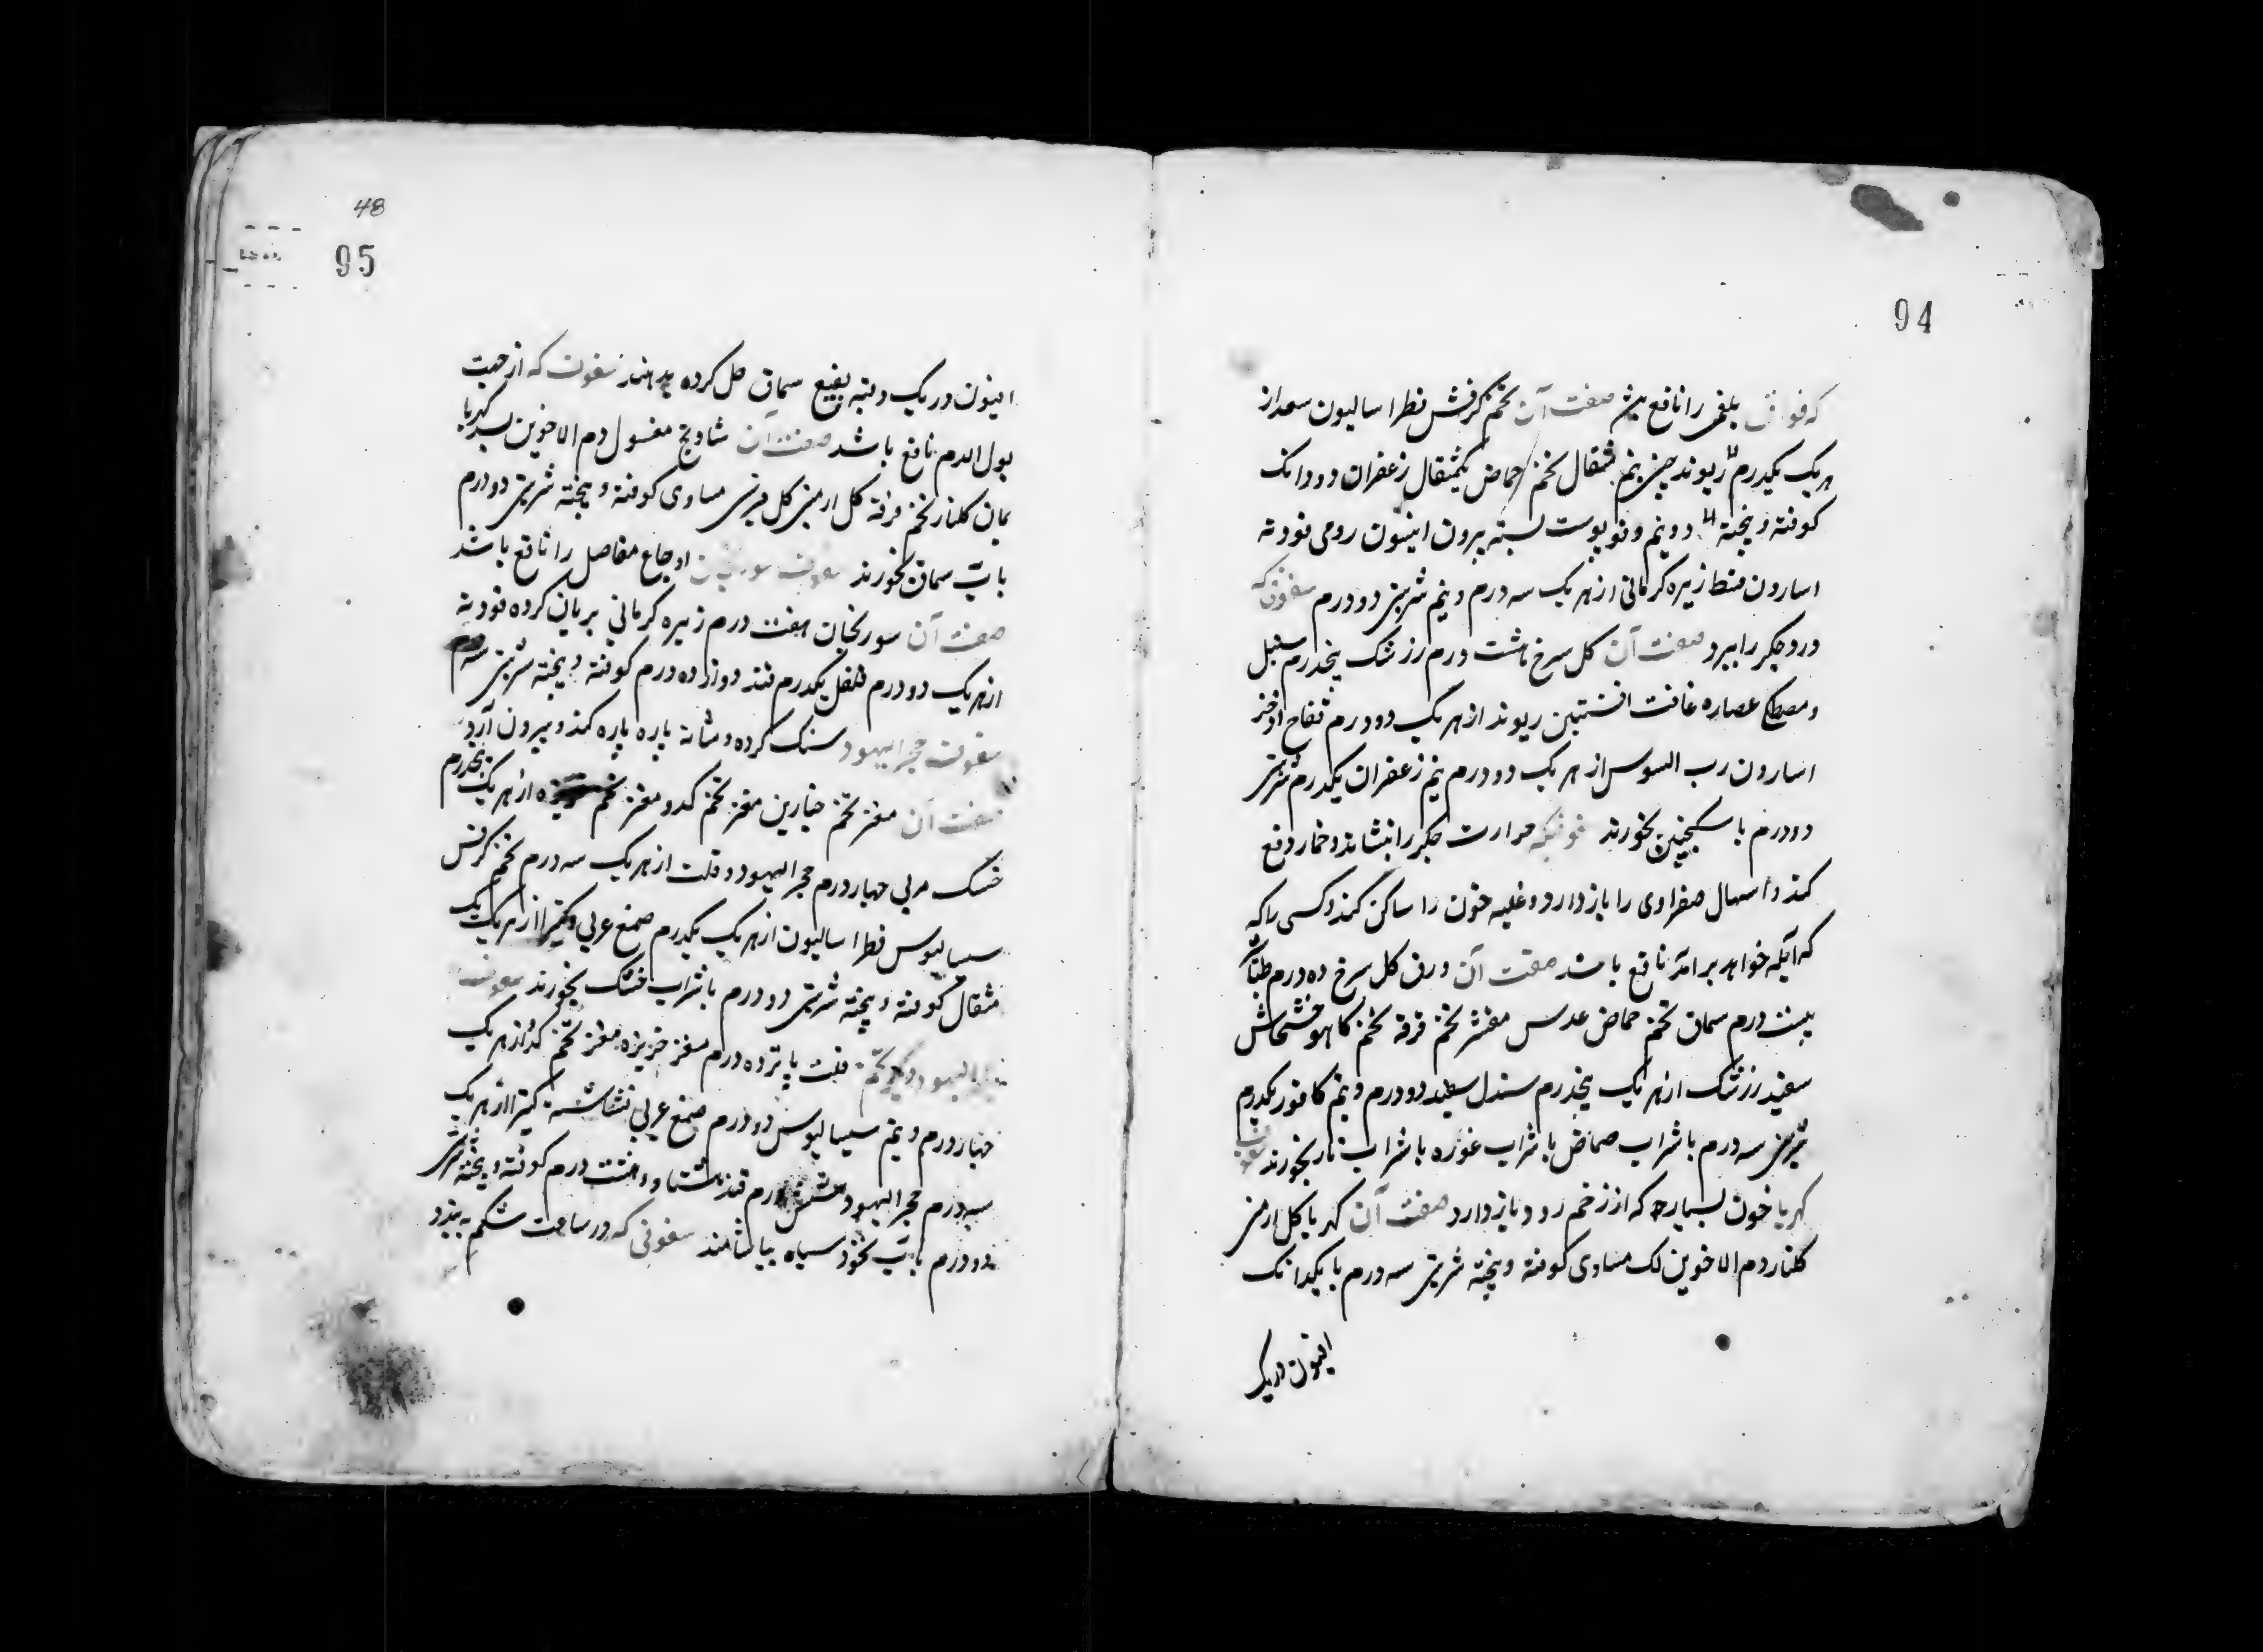 94
که فواق بلغمی را نافع بود صفت آن تخم کرفس فطراسالیون سعد از
هر یک یکدرم ریوند چینی نیم مثقال تخم حماض یکمثقال زعفران دو دانک
کوفته و پیخته دونیم و نو پوست پسته بیرون انیسون رومی فودنه
اسارون زیره کرمانی از هر یک سه درم و نیم شربتی دو درم سفوفی که
درد جکر را ببرد صفت آن کل سرخ هشت درم زرشک پنجدرم سنبل
و مصطکی عصاره غافت افسنتین ریوند از هر یک دو درم فقاح اذخر
اسارون رب السوس از هر یک دو درم نیم زعفران یکدرم شربتی
دو درم با سکنجبین بخورند سفوفیکه حرارت جکر را بنشاند و خمار دفع
کند و اسهال صفراوی را باز دارد و غلبه خون را ساکن کند و کسی را که
که آبله خواهد برآمد نافع باشد صفت آن ورق کل سرخ ده درم طباشیر
بیست درم سماق تخم حماض عدس مقشر تخم خرفه تخم کاهو خشخاش
سفید زرشک از هر یک پنجدرم سندل سفید دو درم و نیم کافور یکدرم
شربتی سه درم با شراب حماض با شراب غوره با شراب نار بخورند سفوف
کهربا خون بسیار که از زخم رود باز دارد صفت آن کهربا کل ارمنی
کلنار دم الاخوین لک مساوی کوفته و پیخته شربتی سه درم با یکدانک
افیون در یک
48
95
افیون در یک وقته بنقیع سماق حل کرده بدهند سفوف که از جهت
بول الدم نافع باشد صفت آن شادنج مغسول دم الاخوین بسد کهربا
کلنار تخم خرفه کل ارمنی کل قبرسی مساوی کوفته و پیخته شربتی دو درم
باب سماق بخورند سفوف سورنجان اوجاع مفاصل را نافع باشد
صفت آن سورنجان هفت درم زیره کرمانی بریان کرده فودنه
از هر یک دو درم فلفل یکدرم قند دوازده درم کوفته و پیخته شربتی سه درم
سفوف حجر الیهود سنک کرده و مثانه پاره پاره کند و بیرون آرد
صفت آن مغز تخم خیارین مغز تخم کدو مغز تخم خربزه از هر یک پنجدرم
خسک مربی چهار درم حجر الیهود و قلت از هر یک سه درم تخم کرفس
سیسالیوس فطراسالیون از هر یک یکدرم صمغ عربی و کتیرا از هر یک یک
مثقال کوفته و پیخته شربتی دو درم با شراب خسک بخورند سفوف
حجر الیهود قلت پانزده درم مغز خربزه مغز تخم کدو از هر یک
چهار درم و نیم سیسالیوس دو درم صمغ عربی نشاسته کتیرا از هر یک
سه درم حجر الیهود شش درم قند هشتاد و هشت درم کوفته و پیخته شربتی
دو درم باب نخود سیاه بیاشامند سفوفی که در ساعت شکم به بندد